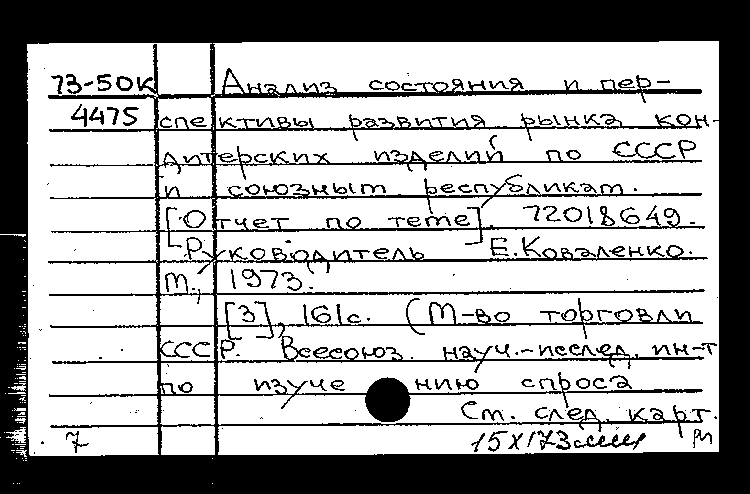 73-50К Анализ состояния и пер-
4475 спективы развития рынка кон-
дитерских изделий по СССР
и союзным республикам.
[Отчет по теме]. 72018649.
Руководитель Е. Коваленко.
М., 1973.
[3], 161с. (М-во торговли
СССР. Всесоюз. науч.-исслед. ин-т
по изучению спроса
См. след. карт.
7 15х173мм